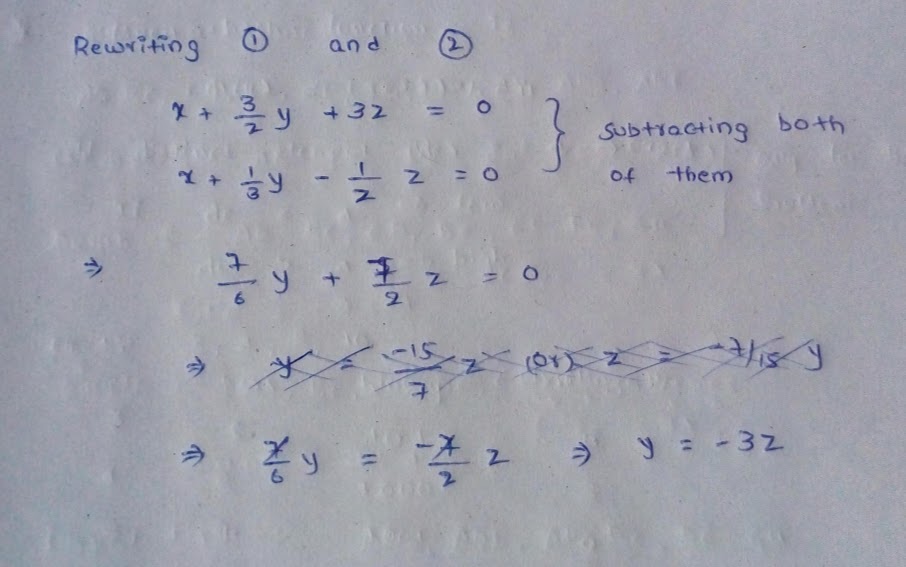 Rewriting ① and ②
x + 3/2 y + 3z = 0
x + 1/3 y - 1/2 z = 0 } subtracting both of them
⇒ 7/6 y + 7/2 z = 0
⇒ y = -15/7 z (or) z = -7/15 y
⇒ 7/6 y = -7/2 z ⇒ y = -3z